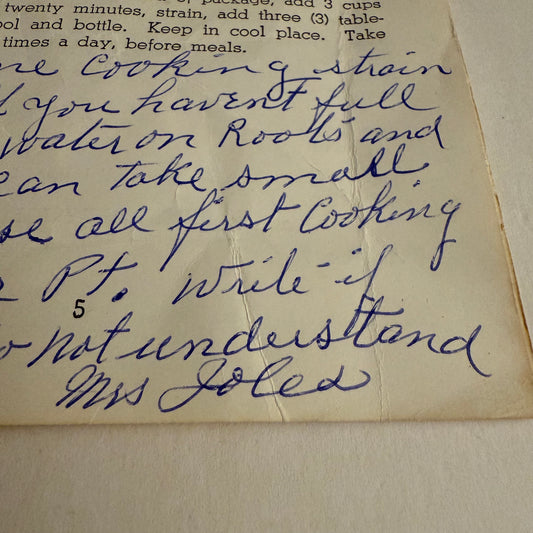 of package, add 3 cups
twenty minutes, strain, add three (3) table-
ool and bottle. Keep in cool place. Take
times a day, before meals.
me Cooking strain
you havent full
water on Roots and
can take small
se all first Cooking
Pt. write if
5
not understand
Mrs Joles